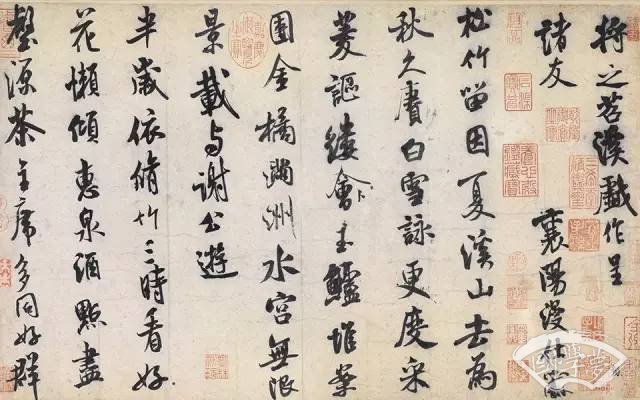 將之苕溪戲作呈
諸友 襄陽漫仕黻
松竹留因夏溪山去為
秋久賡白雪詠更度采
菱謳縷會玉鱸堆案
團金橘滿洲水宮無限
景載与謝公遊
半歲依脩竹三時看好
花懶傾惠泉酒點盡
壑源茶主席多同好群
國學夢